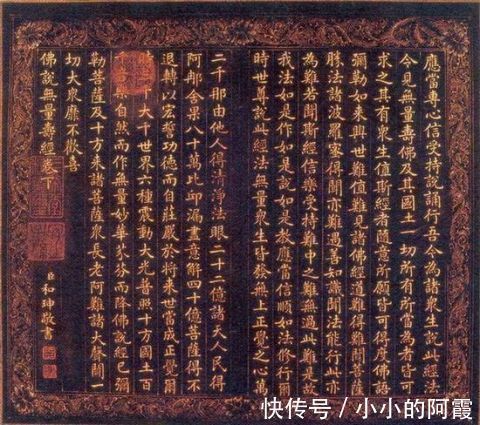 應當專心信受持說誦行吾今為諸眾生說此經法
今見無量壽佛及其國土一切所有所當為者皆可
求之其有眾生值斯經者隨意所願皆可得度佛語
彌勒如來興世難值難見諸佛經道難得難聞菩薩
勝法諸波羅蜜得聞亦難遇善知識聞法能行此亦
為難若聞斯經信樂受持難中之難無過此難是故
我法如是作如是說如是教應當信順如法修行爾
時世尊說此經法無量衆生皆發無上正覺之心萬
二千那由他人得清淨法眼二十二億諸天人民得
阿那含果八十萬比邱漏盡意解四十億菩薩得不
退轉以宏誓功德而自莊嚴於將來世當成正覺爾
時三千大千世界六種震動大光普照十方國土百
千音樂自然而作無量妙華芬芬而降佛說經已彌
勒菩薩及十方來諸菩薩衆長老阿難諸大聲聞一
切大衆靡不歡喜
佛說無量壽經卷下
臣和珅敬書
快传号/小小的阿霞